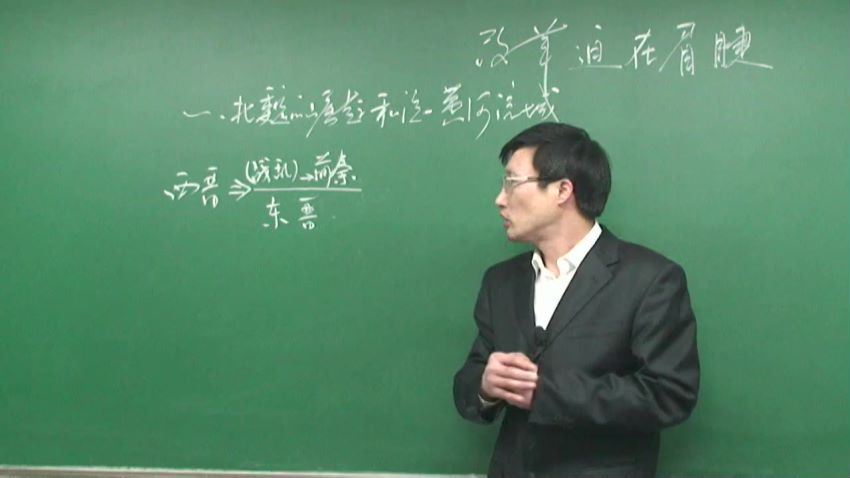 改革迫在眉睫
一、北魏的崛起和统一黄河流域
西晋⇒(战乱)→前秦
东晋